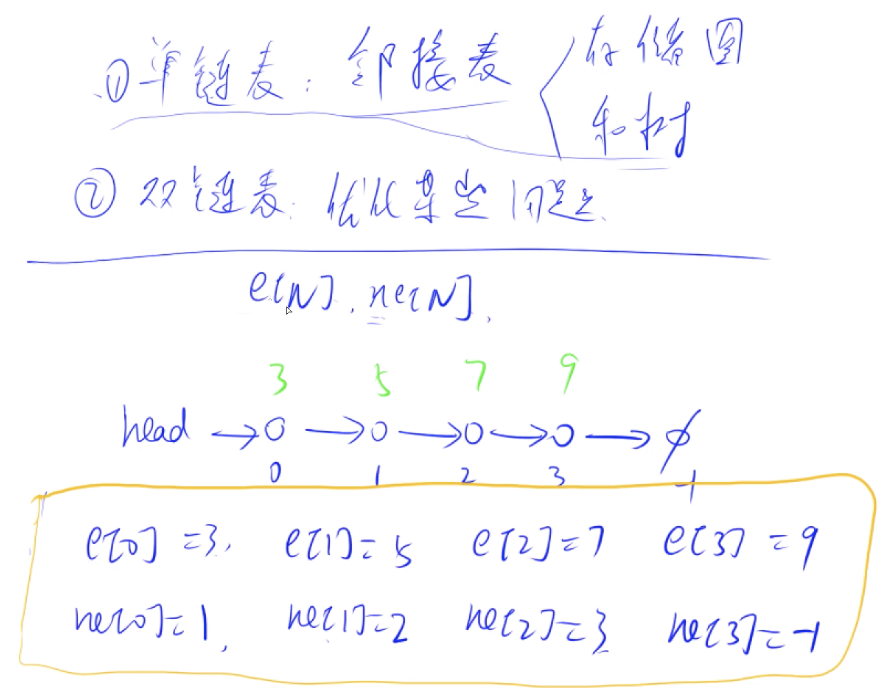 ①单链表：邻接表 存储图
和树
②双链表：优化某些问题.
e[N], ne[N],
3 5 7 9
head → o → o → o → o → ∅
0 1 2 3 -1
e[0]=3, e[1]=5 e[2]=7 e[3]=9
ne[0]=1, ne[1]=2 ne[2]=3 ne[3]=-1